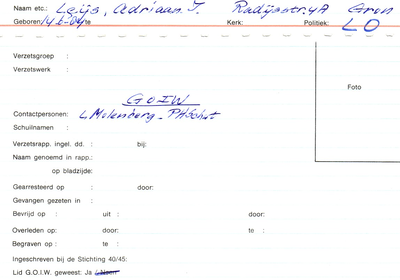 Naam etc.: Leijs, Adriaan J. Radijsstr. 4A Gron
Geboren 14-6-04 te Kerk: Politiek: LO
Verzetsgroep :
Verzetswerk :
Foto
GOIW
Contactpersonen: L Molenberg - PH Schut
Schuilnamen :
Verzetsrapp. ingel. dd. : bij:
Naam genoemd in rapp.:
op bladzijde:
Gearresteerd op : door:
Gevangen gezeten in :
Bevrijd op : uit : door:
Overleden op: door: te :
Begraven op : te :
Ingeschreven bij de Stichting 40/45:
Lid G.O.I.W. geweest: Ja / Neen